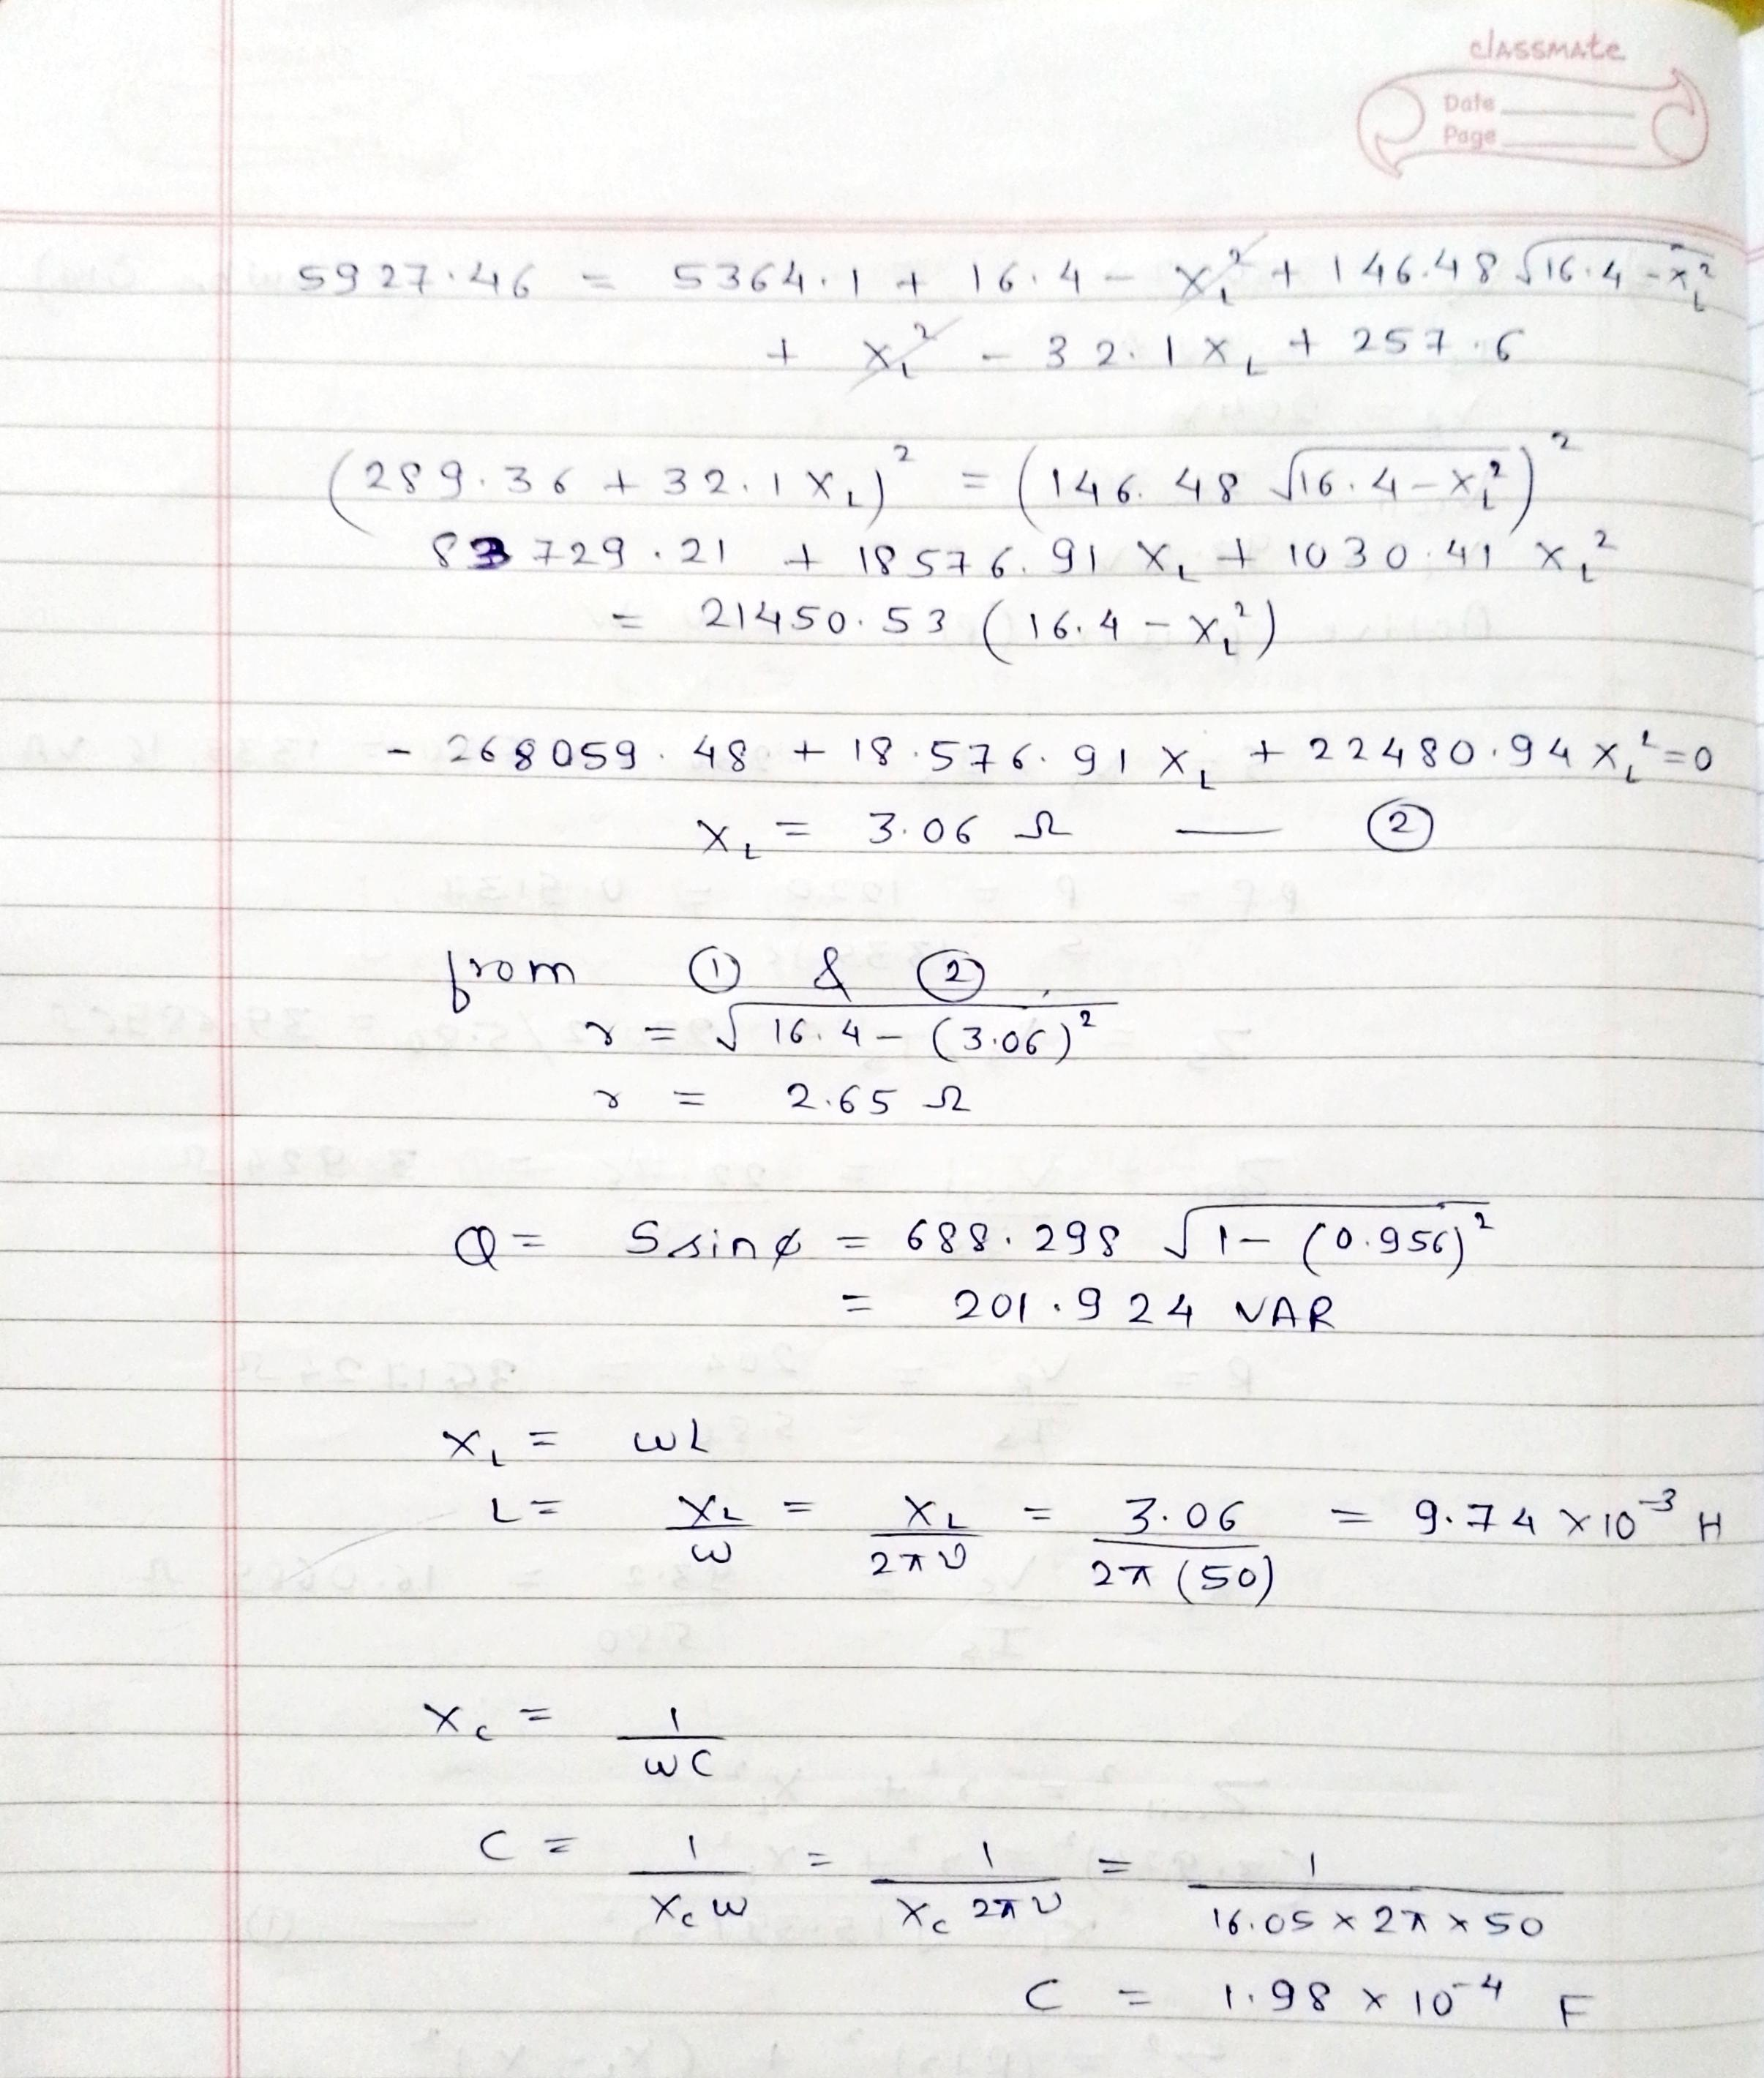 classmate
Date
Page
5927.46 = 5364.1 + 16.4 - X_L² + 146.48 √(16.4 - x_L²)
+ X_L² - 32.1 X_L + 257.6
(289.36 + 32.1 X_L)² = (146.48 √(16.4 - x_L²))²
83729.21 + 18576.91 X_L + 1030.41 X_L²
= 21450.53 (16.4 - X_L²)
- 268059.48 + 18.576.91 X_L + 22480.94 X_L² = 0
X_L = 3.06 Ω — ②
from ① & ②
r = √(16.4 - (3.06)²)
r = 2.65 Ω
Q = S sin φ = 688.298 √(1 - (0.956)²)
= 201.924 VAR
X_L = ωL
L = X_L/ω = X_L/2πν = 3.06/2π(50) = 9.74 × 10⁻³ H
X_C = 1/ωC
C = 1/X_C ω = 1/X_C 2πν = 1/16.05 × 2π × 50
C = 1.98 × 10⁻⁴ F